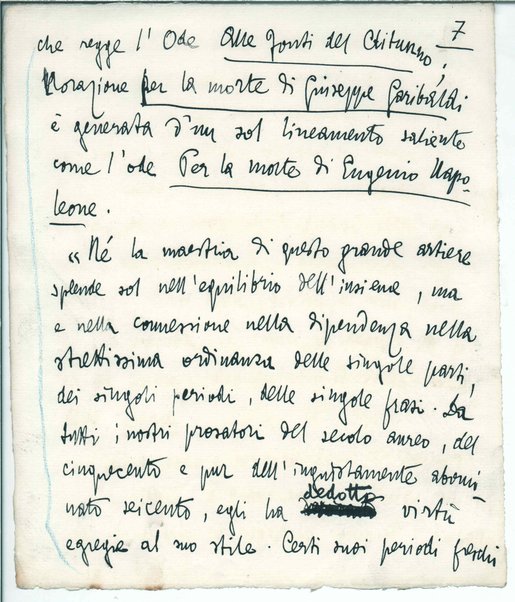 7
che regge l'Ode Alle fonti del Clitunno,
l'orazione per la morte di Giuseppe Garibaldi
è generata d'un sol lineamento saliente
come l'ode Per la morte di Eugenio Napo-
leone.
"Né la maestria di questo grande artiere
splende sol nell'equilibrio dell'insieme, ma
e nella connessione nella dipendenza nella
strettissima ordinanza delle singole parti,
dei singoli periodi, delle singole frasi. Da
tutti i nostri prosatori del secolo aureo, del
cinquecento e pur dell'ingiustamente abomi-
nato seicento, egli ha dedotto virtù
egregie al suo stile. Certi suoi periodi freschi